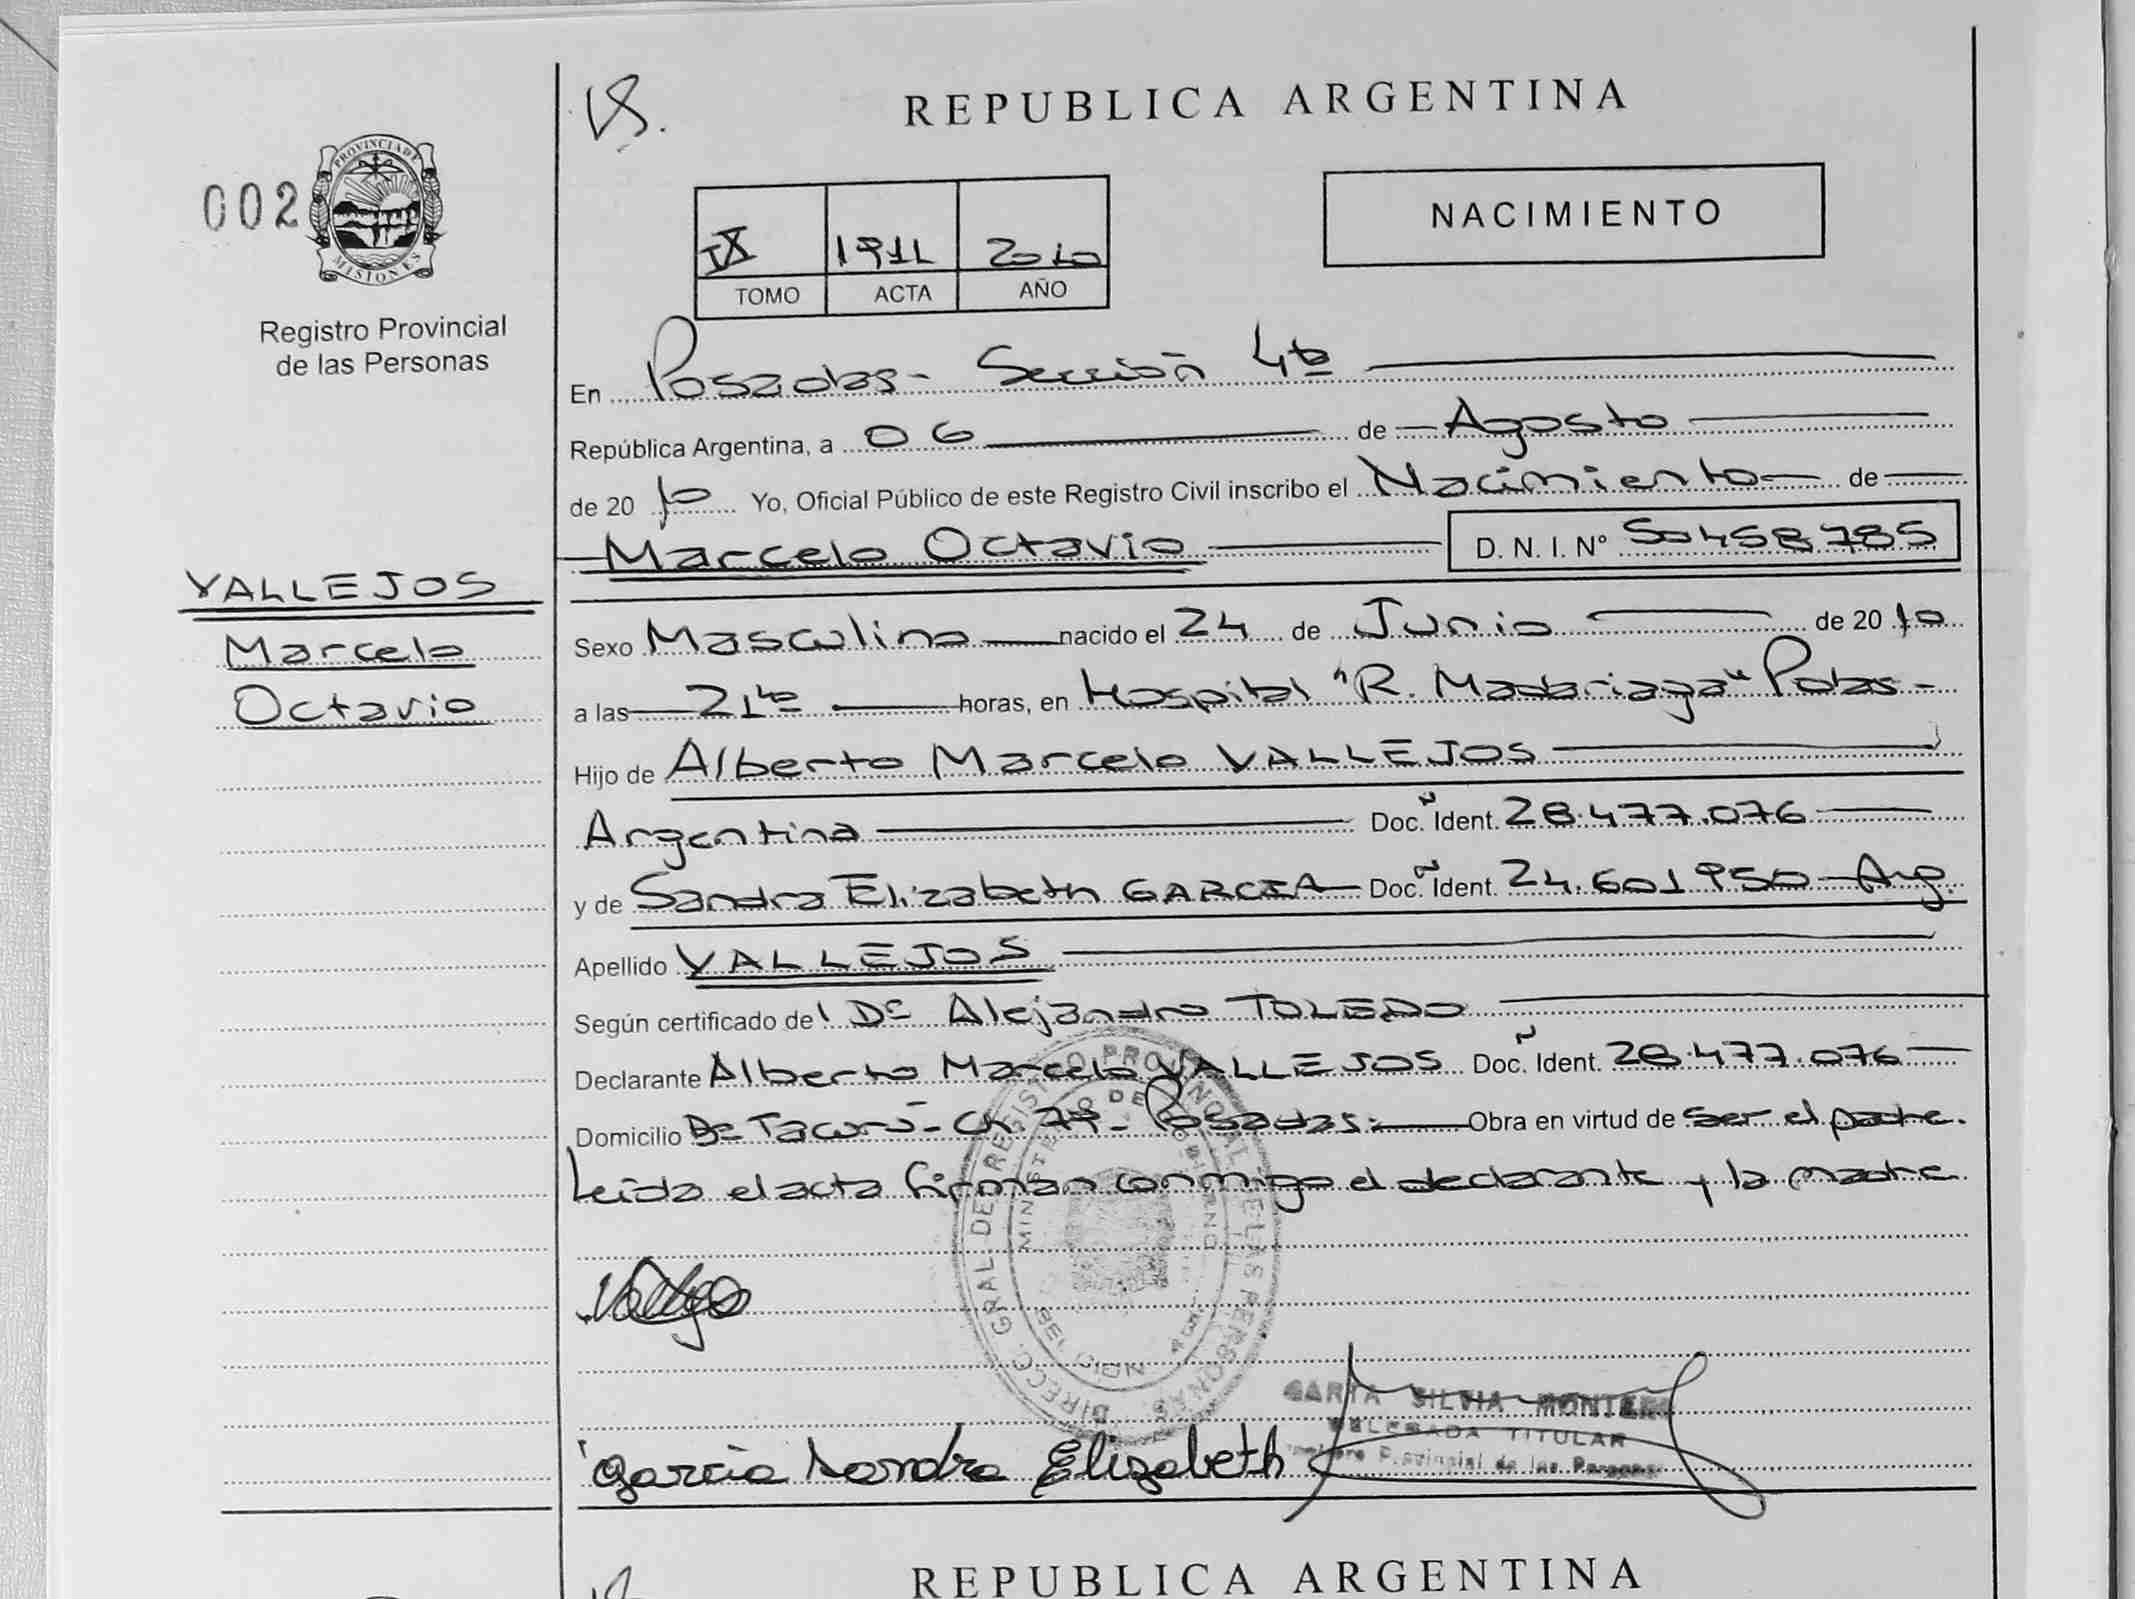 V8.
REPUBLICA ARGENTINA
002
PROVINCIA DE
MISIONES
Registro Provincial
de las Personas
NACIMIENTO
IX 1911 2010
TOMO ACTA AÑO
En Posadas - Sección 4ta
República Argentina, a 06 de Agosto
de 2010 Yo, Oficial Público de este Registro Civil inscribo el Nacimiento de
Marcelo Octavio D. N. I. Nº 50458785
VALLEJOS
Marcelo
Octavio
Sexo Masculino nacido el 24 de Junio de 2010
a las 21 horas, en Hospital "R. Madariaga" Pdas-
Hijo de Alberto Marcelo VALLEJOS
Argentina Doc. Ident. 28.477.076
y de Sandra Elizabeth GARCIA Doc. Ident. 24.601950 - Arg.
Apellido VALLEJOS
Según certificado del Dr Alejandro TOLEDO
Declarante Alberto Marcelo VALLEJOS Doc. Ident. 28.477.076
Domicilio Bº Tacurú - Ch. - Posadas.- Obra en virtud de ser el padre.
Leída el acta firman conmigo el declarante y la madre
DIRECC. GRAL DE REGISTRO PROVINCIAL DE LAS PERSONAS
MINISTERIO DE GOBIERNO
SILVIA
DELEGADA TITULAR
Provincial de las Personas
García Sandra Elizabeth
REPUBLICA ARGENTINA